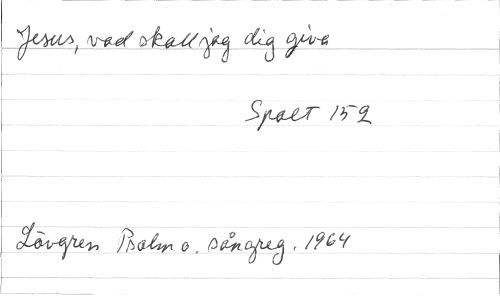 Jesus, vad skall jag dig giva
Spalt 152
Lövgren Psalm o. sångreg. 1964